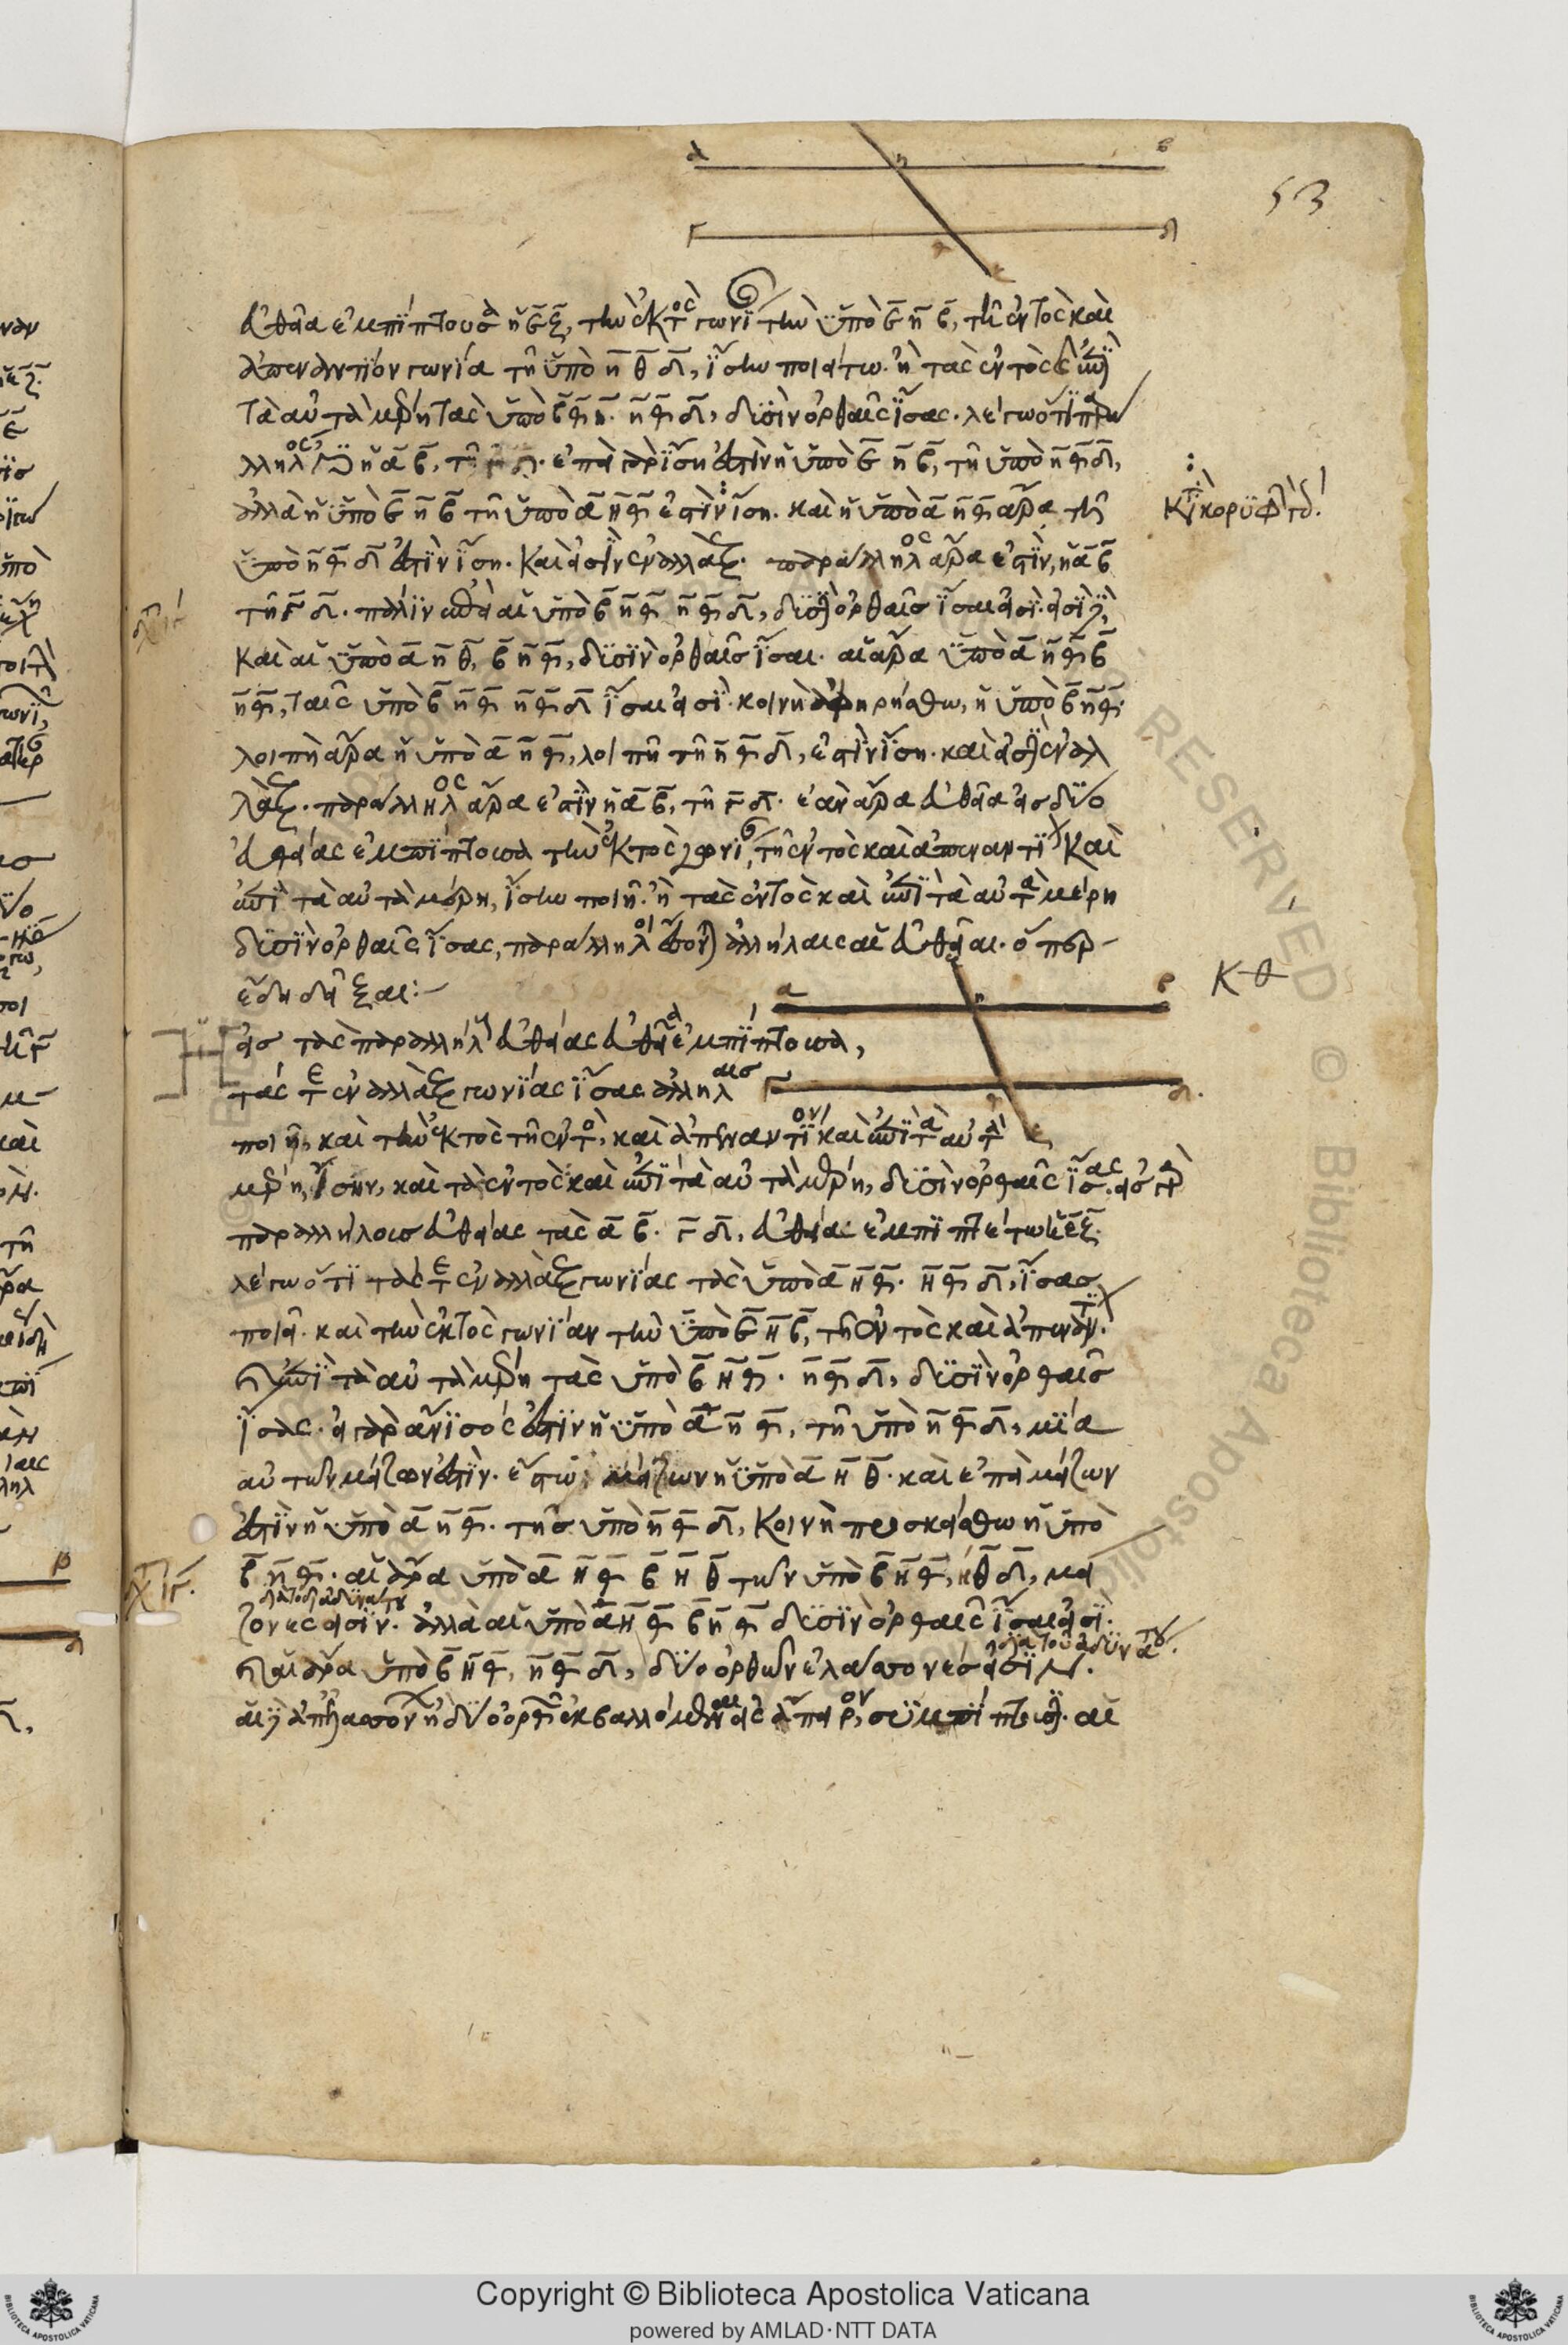 α β
53
Γ Δ
εὐθεῖα ἐμπίπτουσα ἡ εζ, τὴν ἐκτὸς γωνί τὴν ὑπὸ ε η β, τῆ ἐντὸς καὶ
ἀπεναντίον γωνία τῆ ὑπὸ η θ δ, ἴσην ποιείτω. ἢ τὰς ἐντὸς ἐπὶ
τὰ αὐτὰ μέρη τὰς ὑπὸ β η θ. η θ δ, δυσὶν ὀρθαῖς ἴσας. λέγω ὅτι παρα
λληλος ἡ α β, τῆ ἐπεὶ γὰρ ἴση ἐστὶν ἡ ὑπὸ ε η β, τῆ ὑπὸ η θ δ,
ἀλλὰ ἡ ὑπὸ ε η β τῆ ὑπὸ α η θ ἐστὶν ἴση. καὶ ἡ ὑπὸ α η θ ἄρα τῆ
ὑπὸ η θ δ ἐστὶν ἴση. καὶ εἰσὶν ἐναλλάξ. παράλληλος ἄρα ἐστὶν, ἡ α β
τῆ Γ δ. πάλιν αἱ ὑπὸ β η θ η θ δ, δυσὶ ὀρθαῖς ἴσαι εἰσί. εἰσὶ
καὶ αἱ ὑπὸ α η θ, β η θ, δυσὶν ὀρθαῖς ἴσαι. αἱ ἄρα ὑπὸ α η θ β
η θ, ταῖς ὑπὸ β η θ η θ δ ἴσαι εἰσί. κοινὴ ἀφηρήσθω, ἡ ὑπὸ β η θ.
λοιπὴ ἄρα ἡ ὑπὸ α η θ, λοιπῆ τῆ η θ δ, ἐστὶν ἴση. καὶ εἰσὶν ἐναλ
λάξ. παράλληλος ἄρα ἐστὶν ἡ α β, τῆ Γ δ. ἐὰν ἄρα εὐθεῖα εἰς δύο
εὐθείας ἐμπίπτουσα τὴν ἐκτὸς γωνί, τῆ ἐντὸς καὶ ἀπεναντί καὶ
ἐπὶ τὰ αὐτὰ μέρη, ἴσην ποιῆ. ἢ τὰς ἐντὸς καὶ ἐπὶ τὰ αὐτὰ μέρη
δυσὶν ὀρθαῖς ἴσας, παράλληλοι ἔσονται ἀλλήλαις αἱ εὐθεῖαι. ὅπερ
ἔδει δεῖξαι:
Κθ
α β
ἡ εἰς τὰς παραλλήλ εὐθείας εὐθεῖα ἐμπίπτουσα,
τάς τε ἐναλλὰξ γωνίας ἴσας ἀλλήλαις
Γ δ.
ποιῆ, καὶ τὴν ἐκτὸς τῆ ἐντὸ, καὶ ἀπεναντίον καὶ ἐπὶ τὰ αὐτὰ
μέρη, ἴσην, καὶ τὰς ἐντὸς καὶ ἐπὶ τὰ αὐτὰ μέρη, δυσὶν ὀρθαῖς ἴσας. εἰς γὰρ
παραλλήλοισ εὐθείας τὰς α β. Γ δ, εὐθείας ἐμπιπτέτω ἡ εζ.
λέγω ὅτι τάς τε ἐναλλὰξ γωνίας τὰς ὑπὸ α η θ. η θ δ, ἴσας
ποιεῖ. καὶ τὴν ἐκτὸς γωνίαν τὴν ὑπὸ ε η β, τῆ ἐντὸς καὶ ἀπεναντί.
καὶ ἐπὶ τὰ αὐτὰ μέρη τὰς ὑπὸ β η θ. η θ δ, δυσὶν ὀρθαῖς
ἴσας. εἰ γὰρ ἄνισός ἐστιν ἡ ὑπὸ α η θ, τῆ ὑπὸ η θ δ, μία
αὐτῶν μείζων ἐστίν. ἔστω μείζων ἡ ὑπὸ α η θ. καὶ ἐπεὶ μείζων
ἐστὶν ἡ ὑπὸ α η θ. τῆς ὑπὸ η θ δ, κοινὴ προσκείσθω ἡ ὑπὸ
β η θ. αἱ ἄρα ὑπὸ α η θ β η θ τῶν ὑπὸ β η θ, η θ δ, μεί
ζονες εἰσίν. ἀλλὰ αἱ ὑπὸ α η θ β η θ δυσὶν ὀρθαῖς ἴσαι εἰσί.
καὶ αἱ ἄρα ὑπὸ β η θ, η θ δ, δύο ὀρθῶν ἐλάσσονές εἰσιν.
αἱ δὲ ἀπ ἐλασσόνων ἢ δύο ὀρθῶν ἐκβαλλόμεναι εἰς ἄπειρον, συμπίπτουσι. αἱ
Copyright © Biblioteca Apostolica Vaticana
powered by AMLAD·NTT DATA